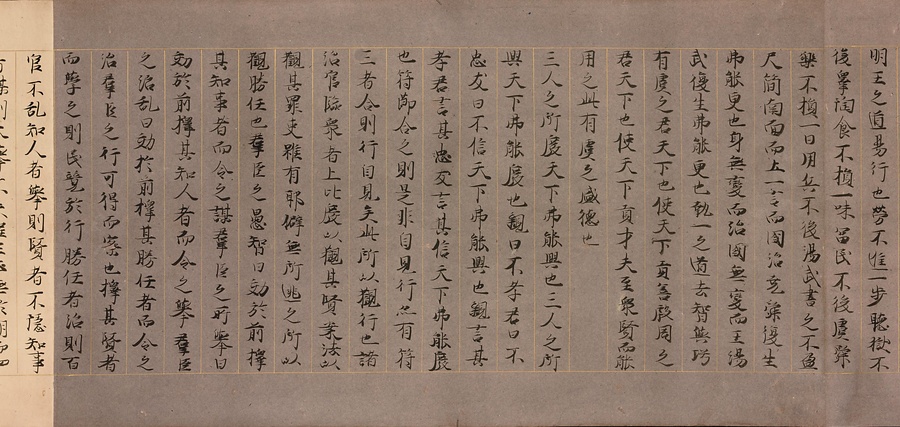 明王之道易行也勞不進一步聽獄不
後皋陶食不損一味富民不後虞舜
樂不損一日用兵不後湯武書之不盈
尺簡南面而立一言而國治堯舜復生
弗能更也身無變而治國無變而王湯
武復生弗能更也執一之道去智與巧
有虞之君天下也使天下貢善殷周之
君天下也使天下貢才夫至衆賢而能
用之此有虞之盛德也
三人之所廢天下弗能興也三人之所
興天下弗能廢也親曰不孝君曰不
忠友曰不信天下弗能興也親言其
孝君言其忠友言其信天下弗能廢
也符節合之則是非自見行亦有符
三者合則行自見矣此所以觀行也諸
治官臨衆者上比度以觀其賢案法以
觀其罪吏雖有邪僻無所逃之所以
觀勝任也群臣之愚智日効於前擇
其知事者而令之謀群臣之所舉日
効於前擇其知人者而令之舉群臣
之治乱日効於前擇其勝任者而令之
治群臣之行可得而察也擇其賢者
而舉之則民競於行勝任者治則百
官不乱知人者舉則賢者不隱知事